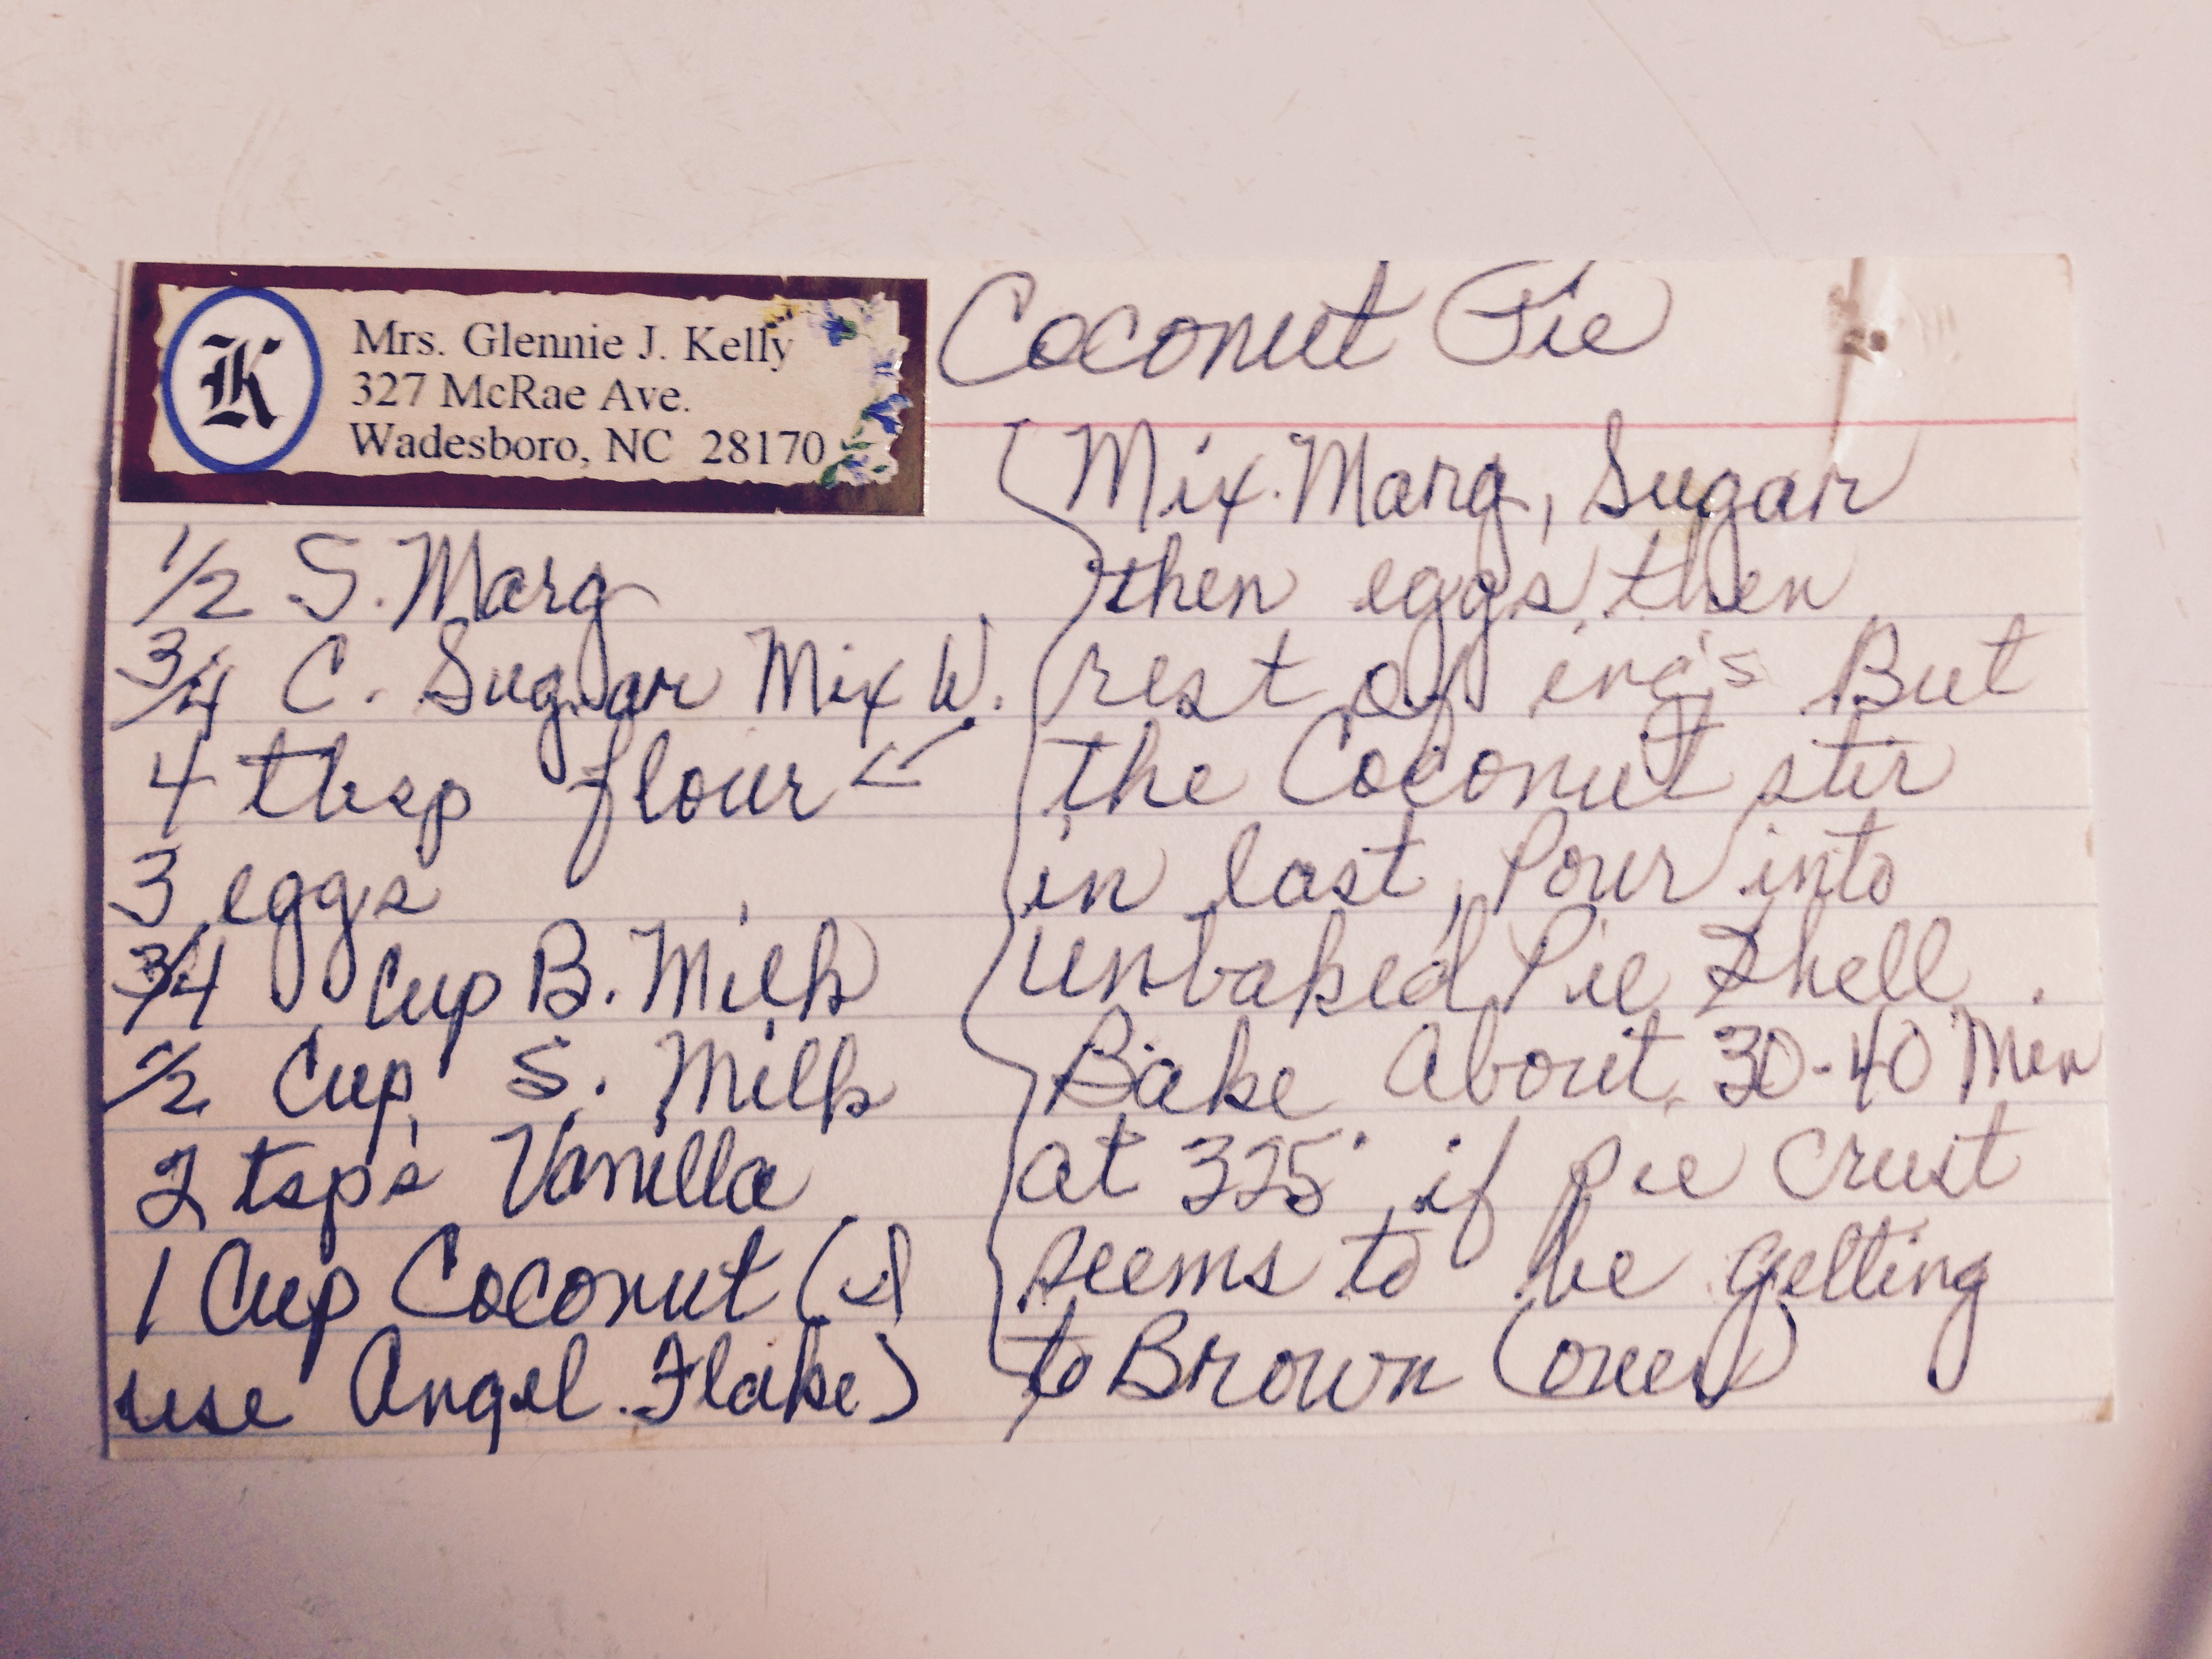 K
Mrs. Glennie J. Kelly
327 McRae Ave.
Wadesboro, NC 28170
Coconut Pie
1/2 S. Marg
3/4 C. Sugar Mix W.
4 tbsp flour ←
3 eggs
3/4 Cup B. Milk
1/2 Cup S. Milk
2 tsp's Vanilla
1 Cup Coconut (I
use Angel Flake)
Mix Marg, Sugar
then eggs, then
rest of ing's But
the Coconut stir
in last, Pour into
unbaked Pie Shell.
Bake About 30-40 Min
at 325° if pie crust
seems to be getting
to Brown (over)